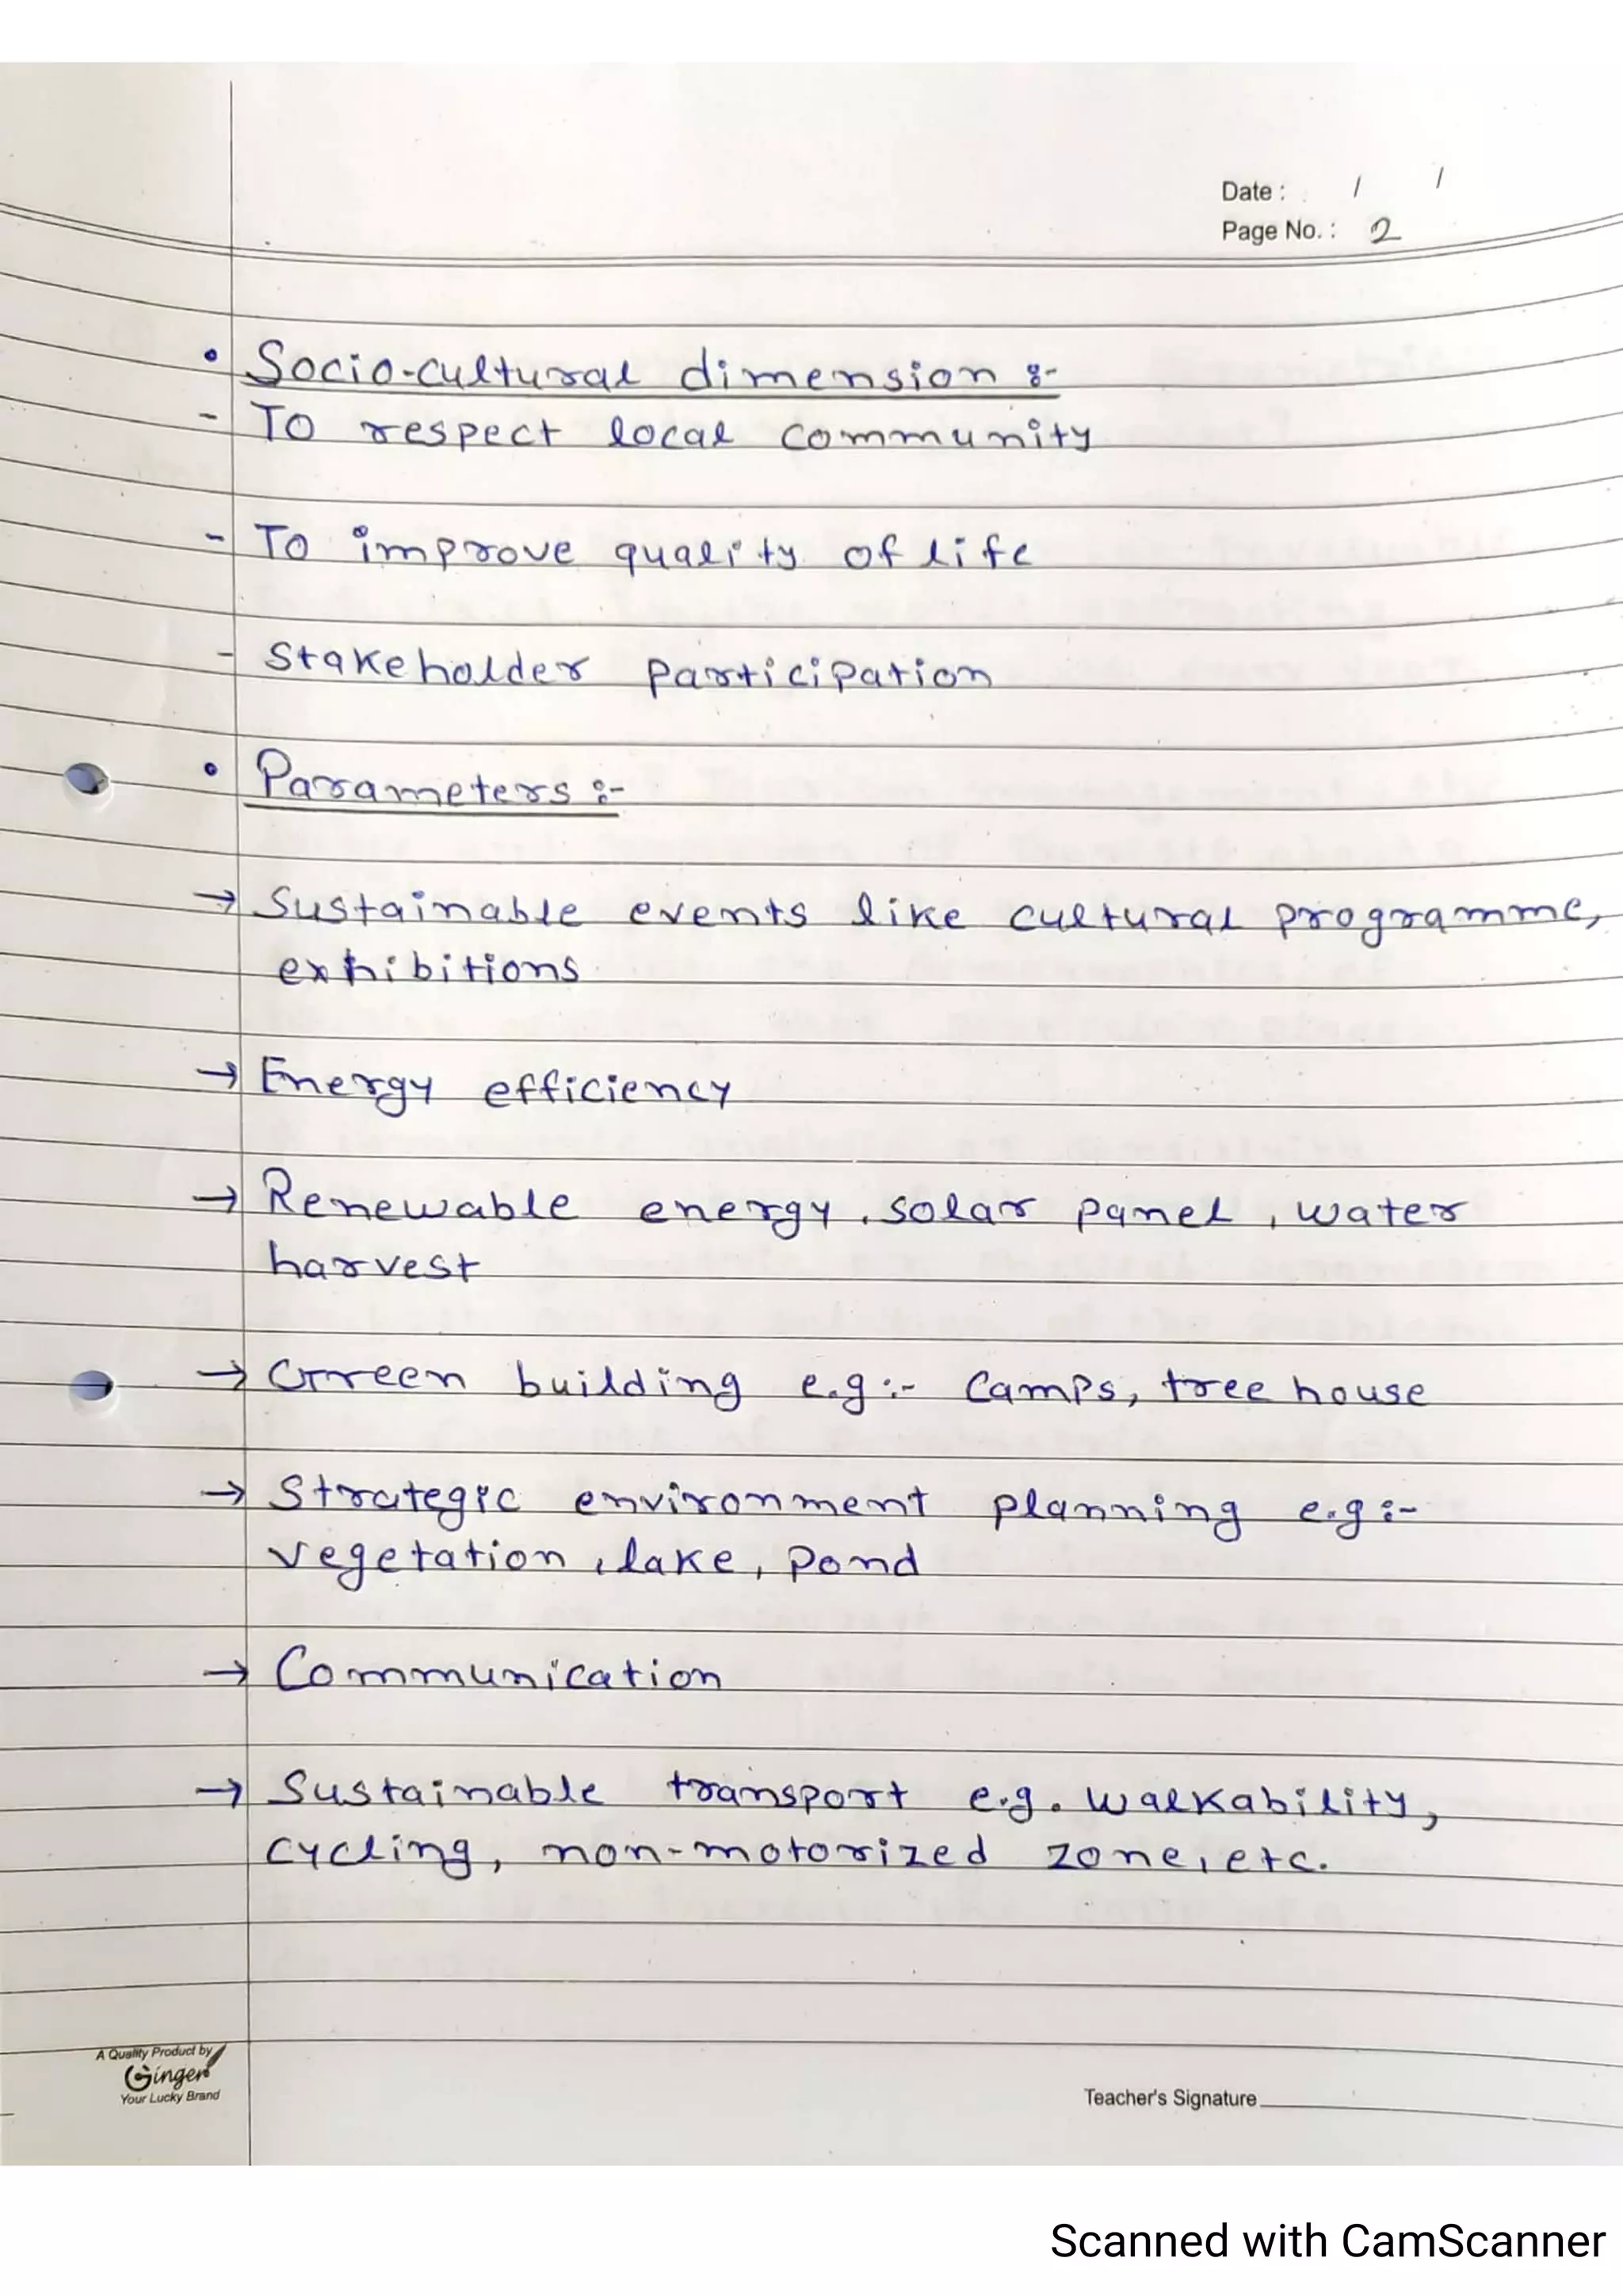 Date : / /
Page No. : 2
• Socio-cultural dimension :-
- To respect local community
- To improve quality of life
- Stakeholder participation
• Parameters :-
→ Sustainable events like cultural programme,
exhibitions
→ Energy efficiency
→ Renewable energy, solar panel, water
harvest
→ Green building e.g :- Camps, tree house
→ Strategic environment planning e.g :-
vegetation, lake, pond
→ Communication
→ Sustainable transport e.g. walkability,
cycling, non-motorized zone, etc.
A Quality Product by
Ginger
Your Lucky Brand
Teacher's Signature
Scanned with CamScanner